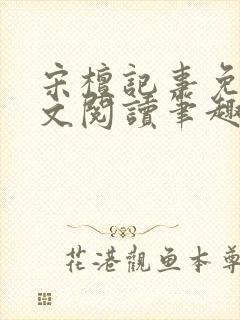 宋檀記事免
文閱讀筆趣
花港觀魚本尊